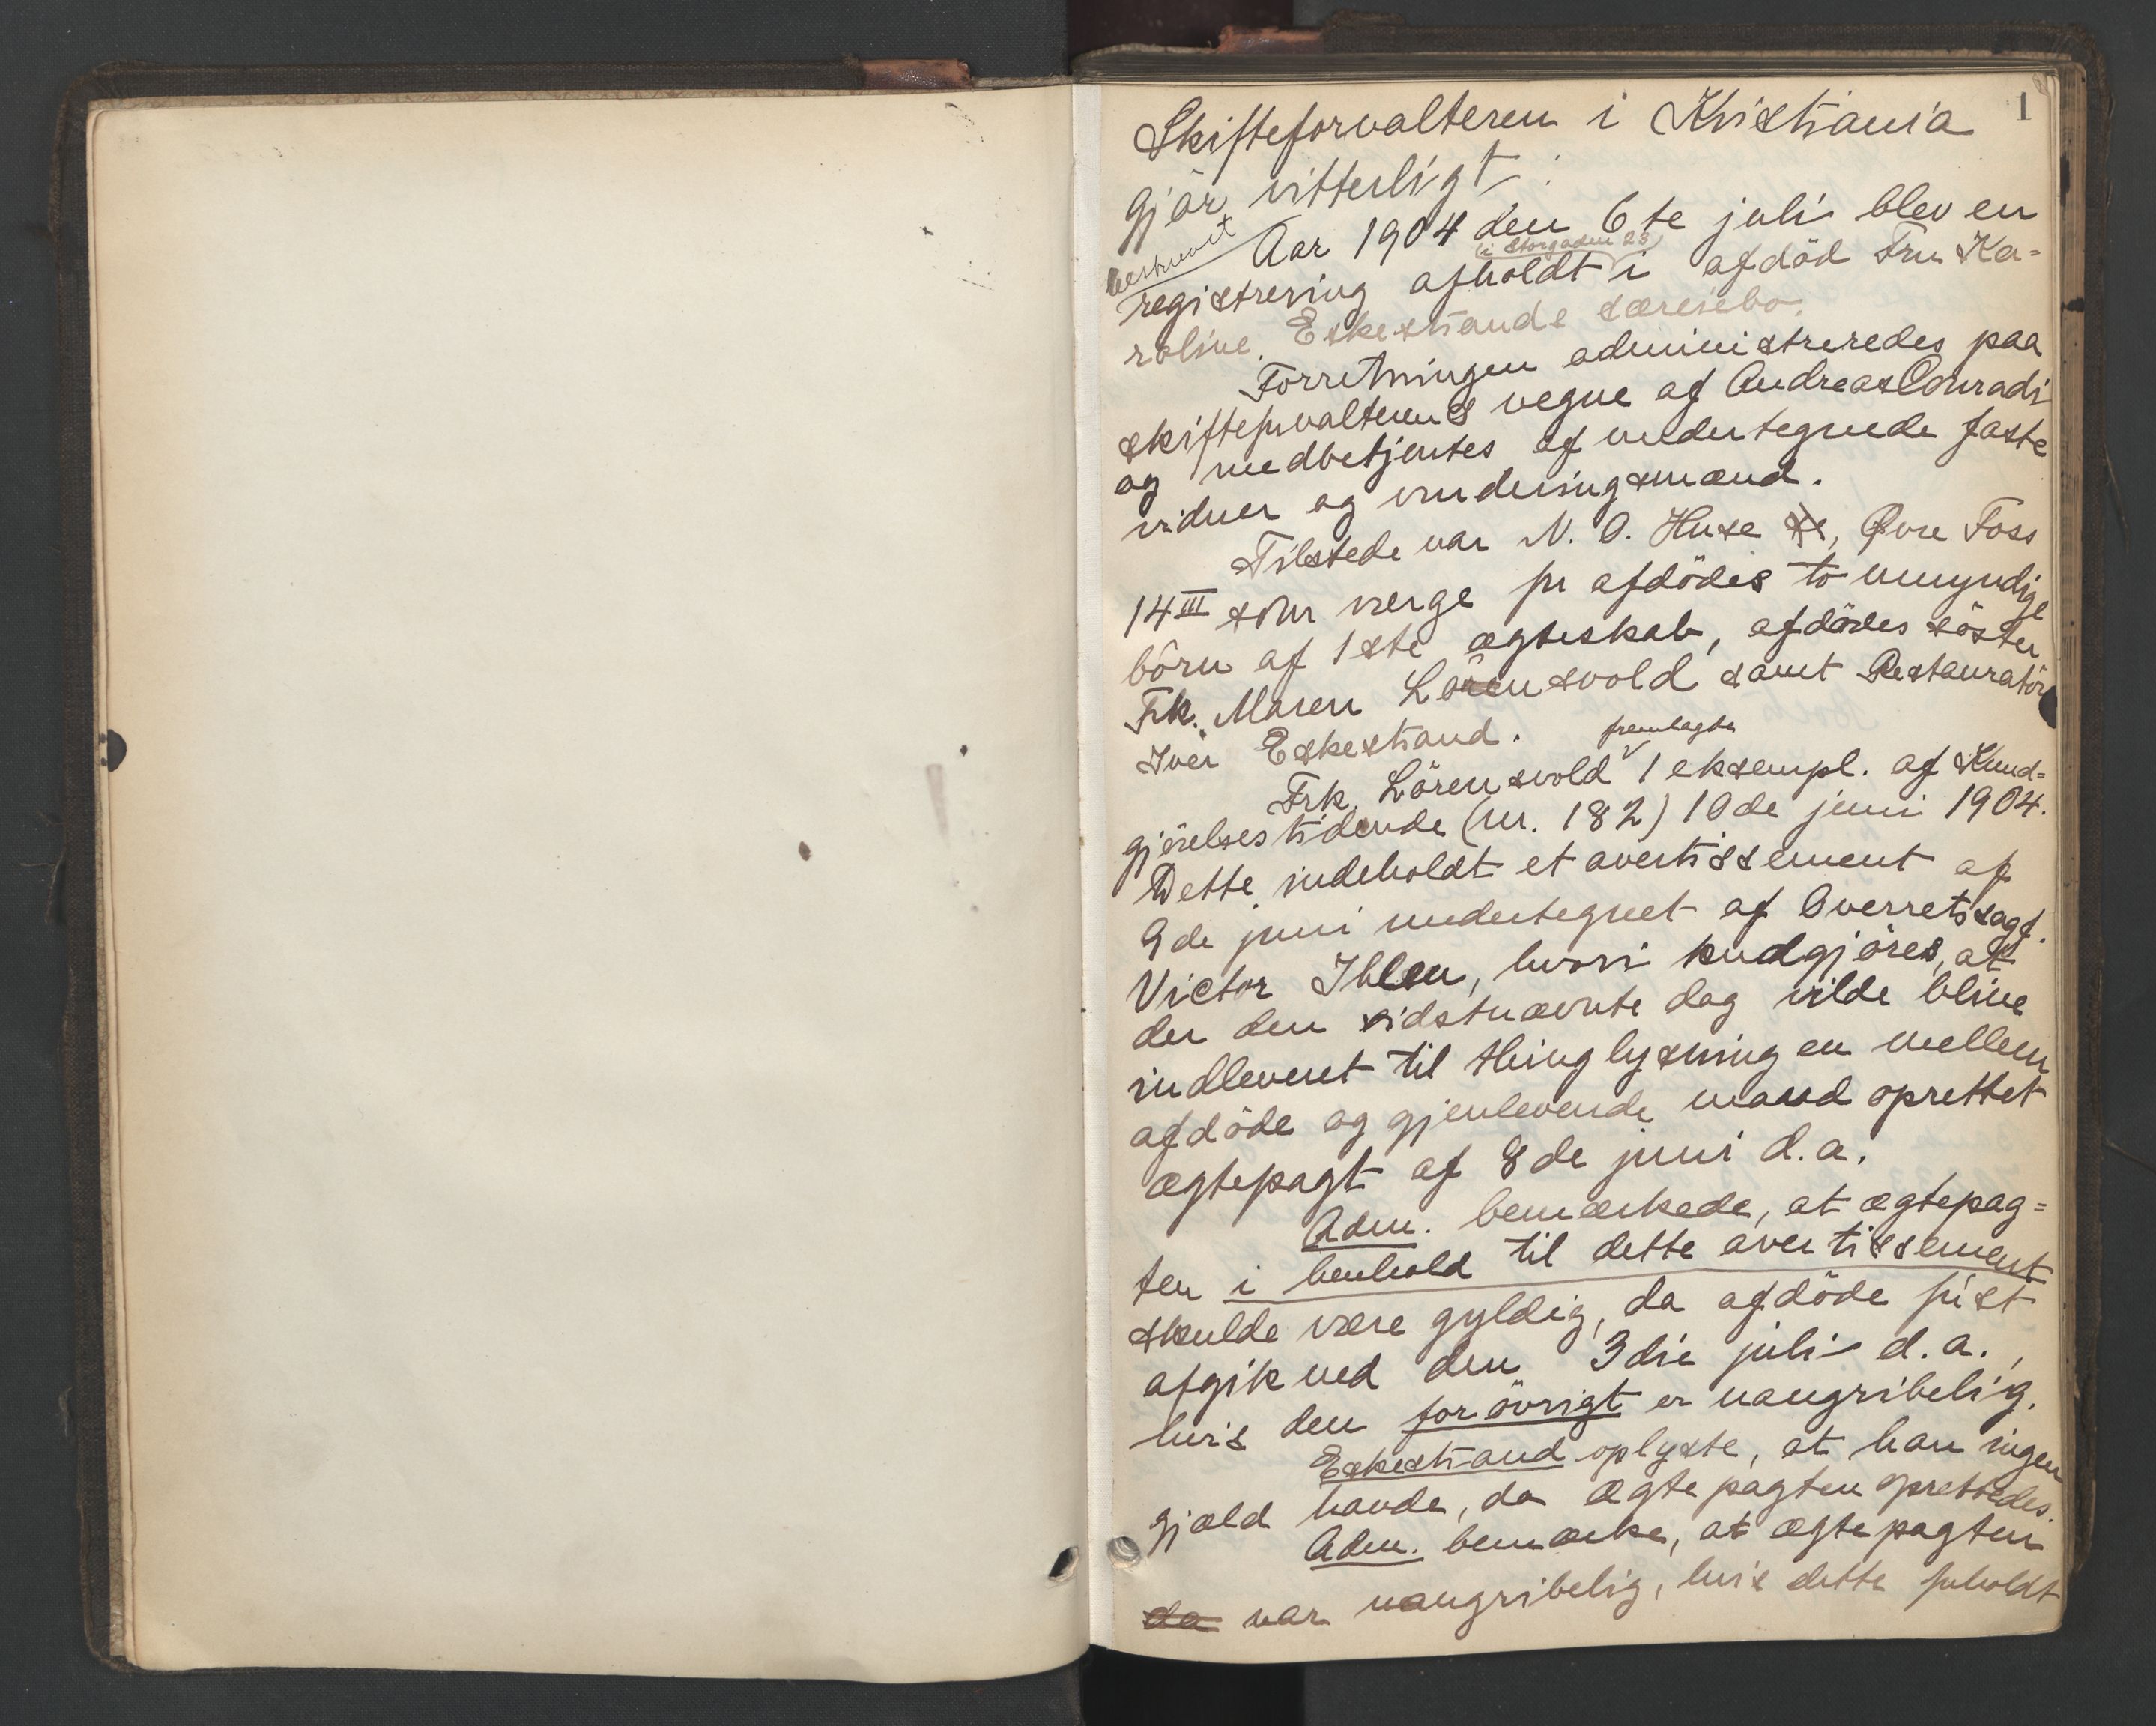 1
Skifteforvalteren i Kristiania
gjör vitterligt:
Aar 1904 den 6te juli blev en
beskrevet
(i Storgaden 23)
registrering afholdt i afdöd Fru Ka-
roline Eskestrands særeiebo.
Forretningen administreredes paa
skifteforvalterens vegne af Andreas Conradi
og medbetjentes af undertegnede faste
vidner og vurderingsmænd.
Tilstede var N. O. Huse, Øvre Foss
14 III som værge for afdödes to umyndige
börn af 1ste ægteskab, afdödes söster
Frk. Maren Lörensvold samt Restauratör
Iver Eskestrand.
fremlagde
Frk. Lörensvold 1 eksempl. af Kund-
gjörelsestidende (nr. 182) 10de juni 1904.
Dette indeholdt et avertissement af
9de juni undertegnet af Overretssagf.
Victor Ihlen, hvori kudgjöres, at
der den sidstnævnte dag vilde blive
indleveret til thinglysning en mellem
afdöde og gjenlevende mand oprettet
ægtepagt af 8de juni d.a.
Adm. bemærkede, at ægtepag-
ten i henhold til dette avertissement
skulde være gyldig, da afdöde förs​t
afgik ved den 3die juli d.a.,
hvis den forövrigt er uangribelig.
Eskestrand oplyste, at han ingen
gjæld havde, da ægtepagten oprettedes.
Adm. bemærke, at ægtepagten
da var uangribelig, hvis dette forholdt